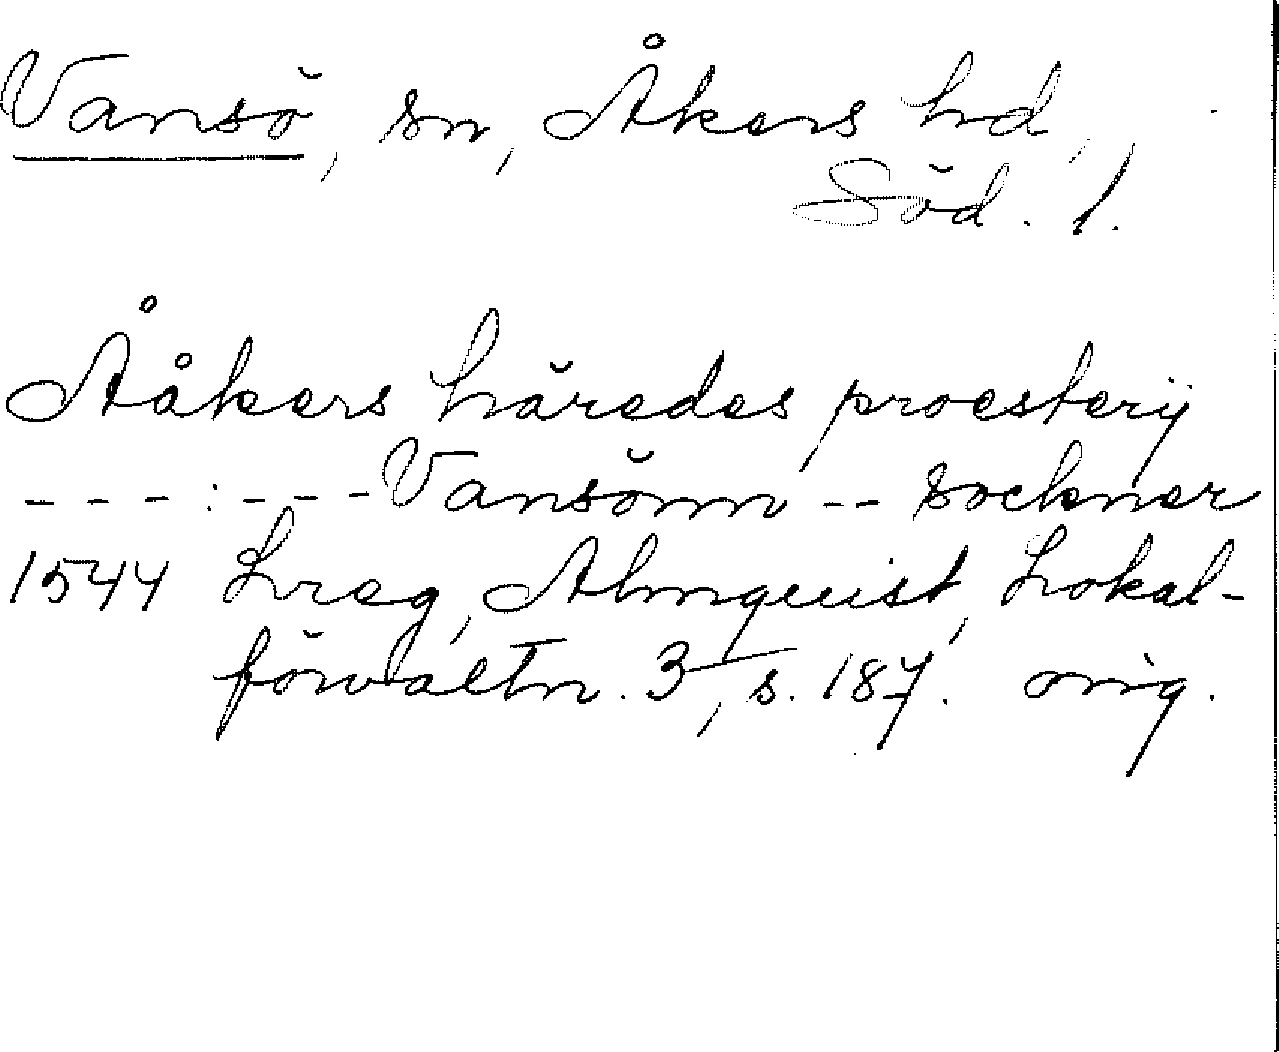 Vansö, sn, Åkers hd,
Söd. l.
Ååkers häredes proesterij
- - - : - - - Vansönn -- socknar
1544 Lreg, Almquist, Lokal-
förvaltn. 3, s. 187. orig.